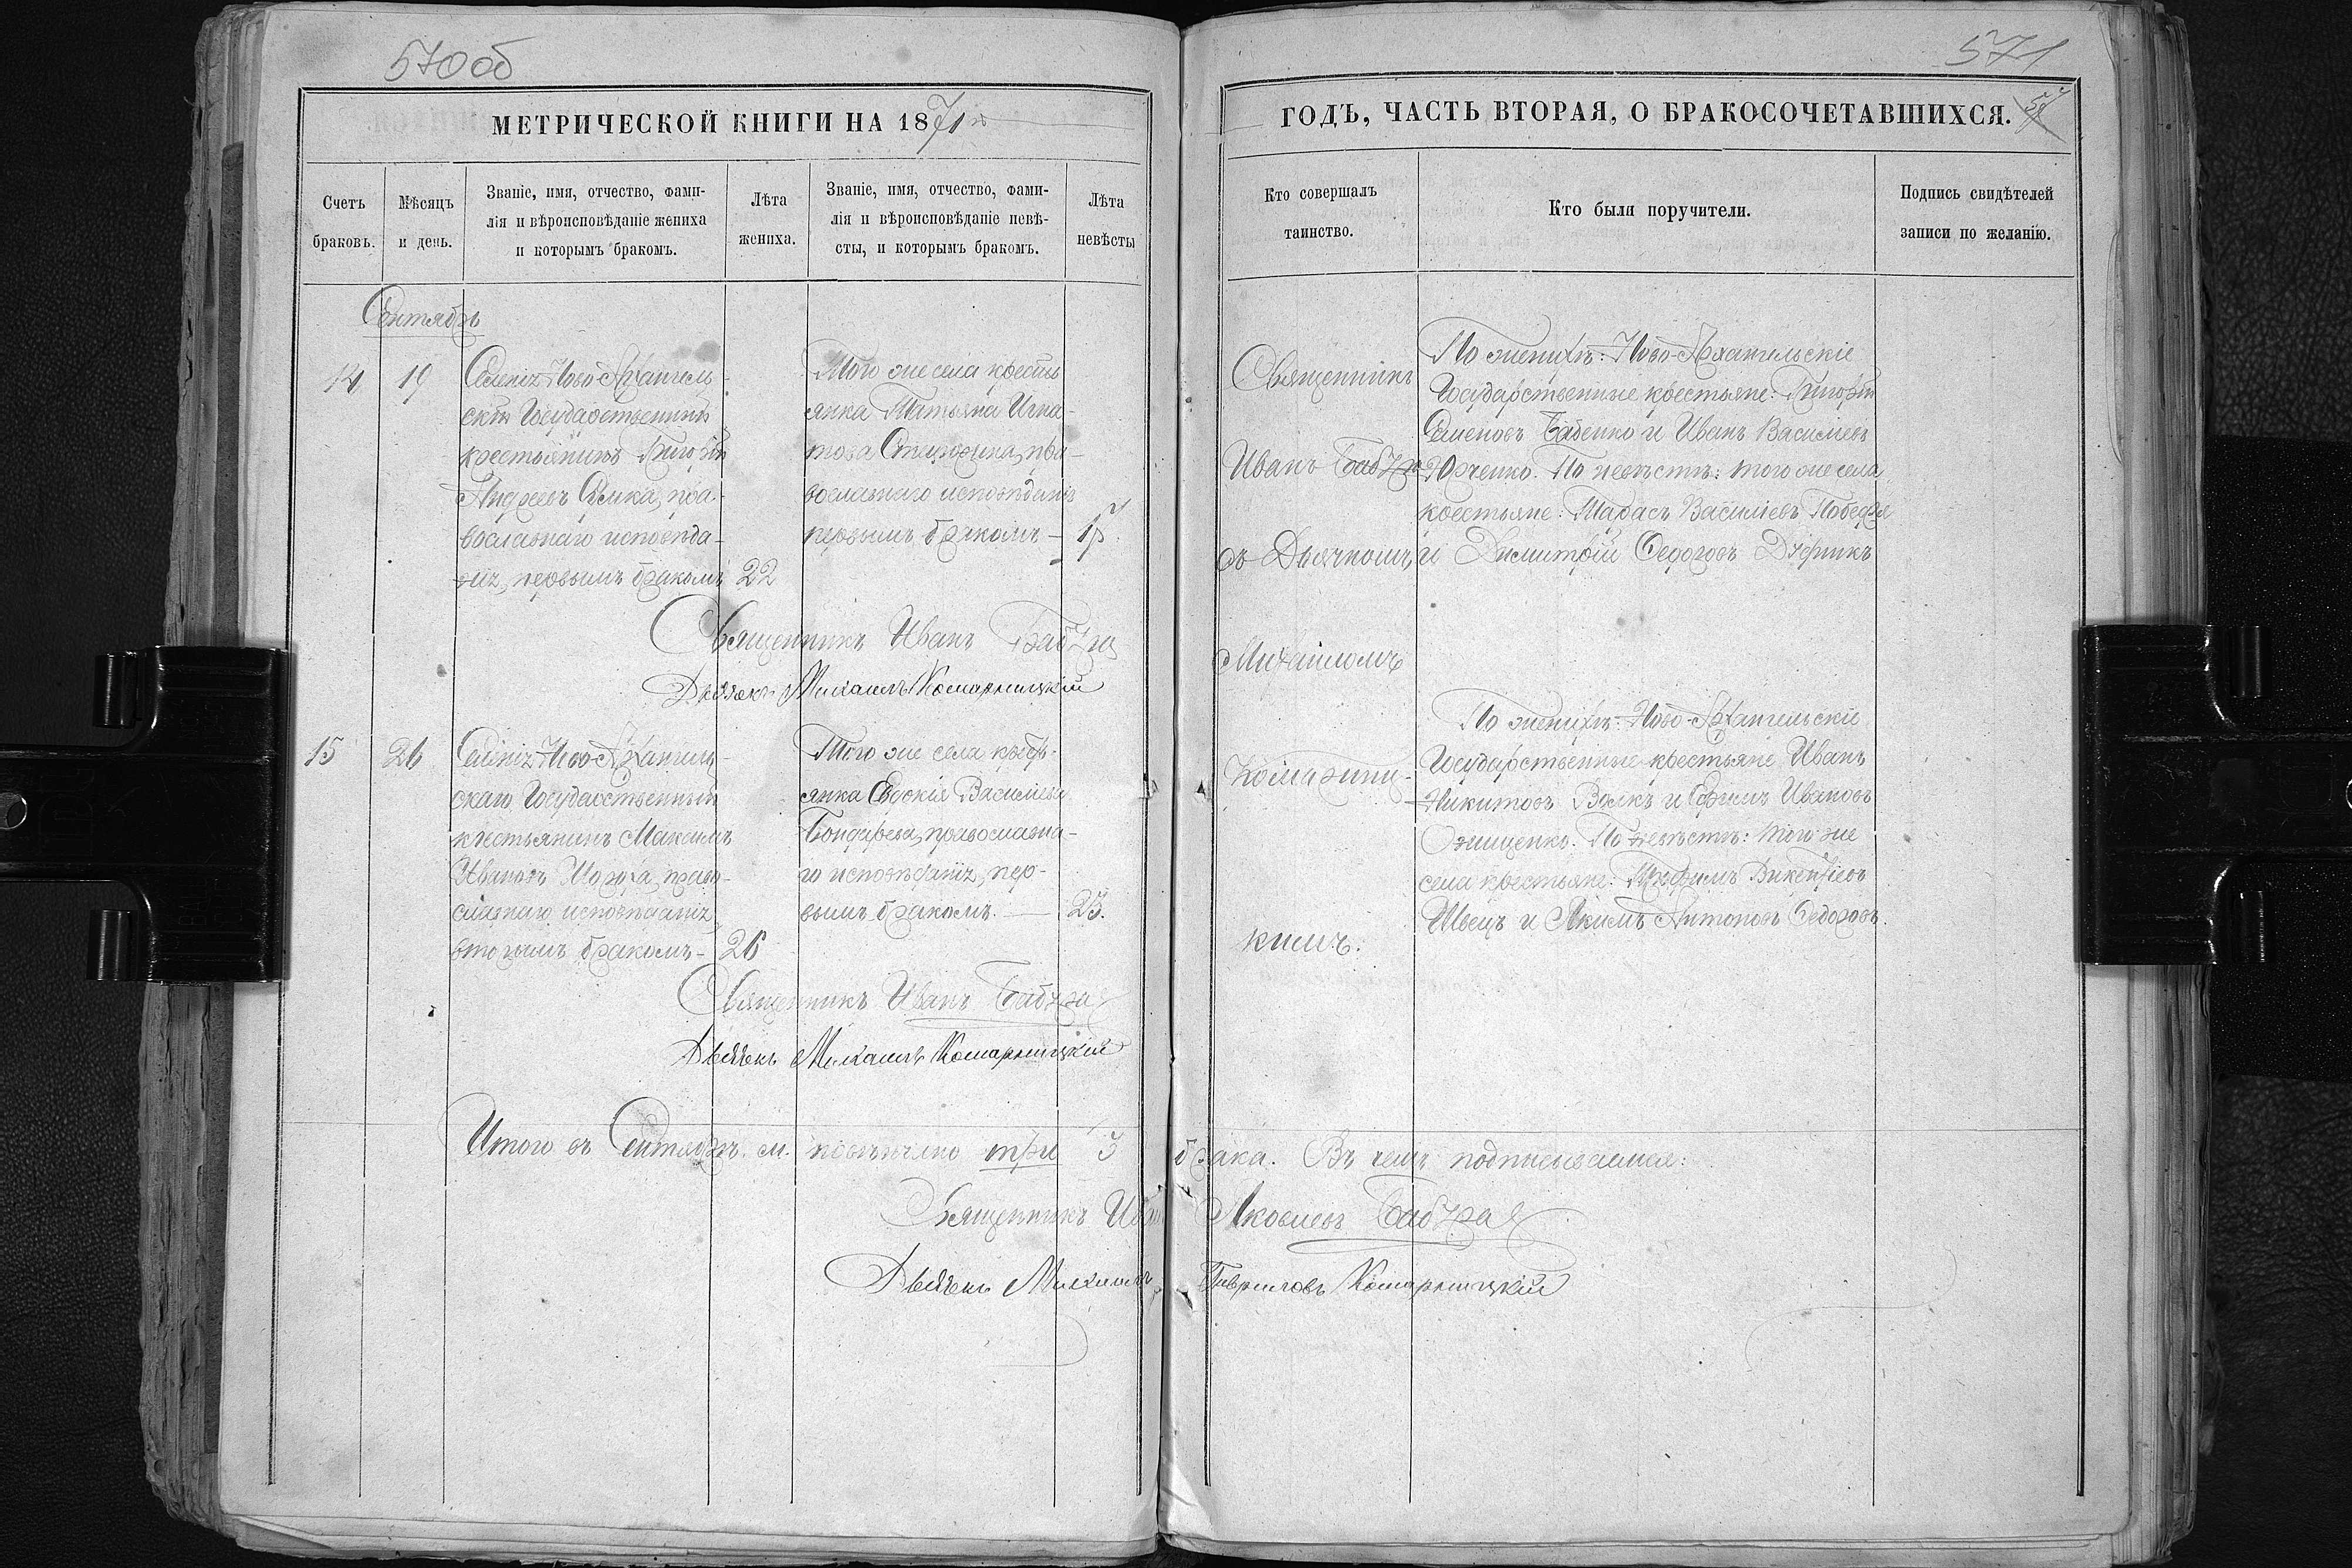 570об
571
МЕТРИЧЕСКОЙ КНИГИ НА 1871й
ГОДЪ, ЧАСТЬ ВТОРАЯ, О БРАКОСОЧЕТАВШИХСЯ.
Счетъ
браковъ.
Мѣсяцъ
и день.
Званіе, имя, отчество, фами-
лія и вѣроисповѣданіе жениха
и которымъ бракомъ.
Лѣта
жениха.
Званіе, имя, отчество, фами-
лія и вѣроисповѣданіе невѣ-
сты, и которымъ бракомъ.
Лѣта
невѣсты
Кто совершалъ
таинство.
Кто были поручители.
Подпись свидѣтелей
записи по желанію.
Сентябрь
14
19
Селенія Ново-Архангель-
скій Государственный
крестьянинъ Григорій
Андреевъ пра-
вославнаго исповѣда-
нія, первымъ бракомъ
22
Того же села кресть
янка Татьяна Игна-
това пра-
вославнаго исповѣданія
первымъ бракомъ —
17
Священникъ Иванъ Бабура
Дьячекъ Михаилъ Комарницкій
Священникъ
Иванъ Бабура
съ Дьячкомъ
Михаиломъ
Комарниц-
кимъ.
По женихѣ: Ново-Архангельскіе
Государственные крестьяне: Григорій
Семеновъ Бабенко и Иванъ Васильевъ
Юрченко. По невѣстѣ: того же села
крестьяне: Тарасъ Васильевъ
и Димитрій Федоровъ
15
26
Селенія Ново-Архангель-
скаго Государственный
крестьянинъ Максимъ
Ивановъ право-
славнаго исповѣданія,
вторымъ бракомъ-
26
Того же села кресть-
янка Евдокія Васильева
Бондарева, православна-
го исповѣданія, пер-
вымъ бракомъ. —
23.
Священникъ Иванъ Бабура
Дьячекъ Михаилъ Комарницкій
По женихѣ: Ново-Архангельскіе
Государственные крестьяне, Иванъ
Никитовъ Волкъ и Ефимъ Ивановъ
Онищенко. По невѣстѣ: того же
села крестьяне: Викентіевъ
Швецъ и Якимъ Антоновъ Федоровъ.
Итого въ Сентябрѣ м. повѣнчано три 3 брака. Въ чемъ подписываемся:
Священникъ Иванъ Яковлевъ Бабура
Дьячекъ Михаилъ Гавриловъ Комарницкій